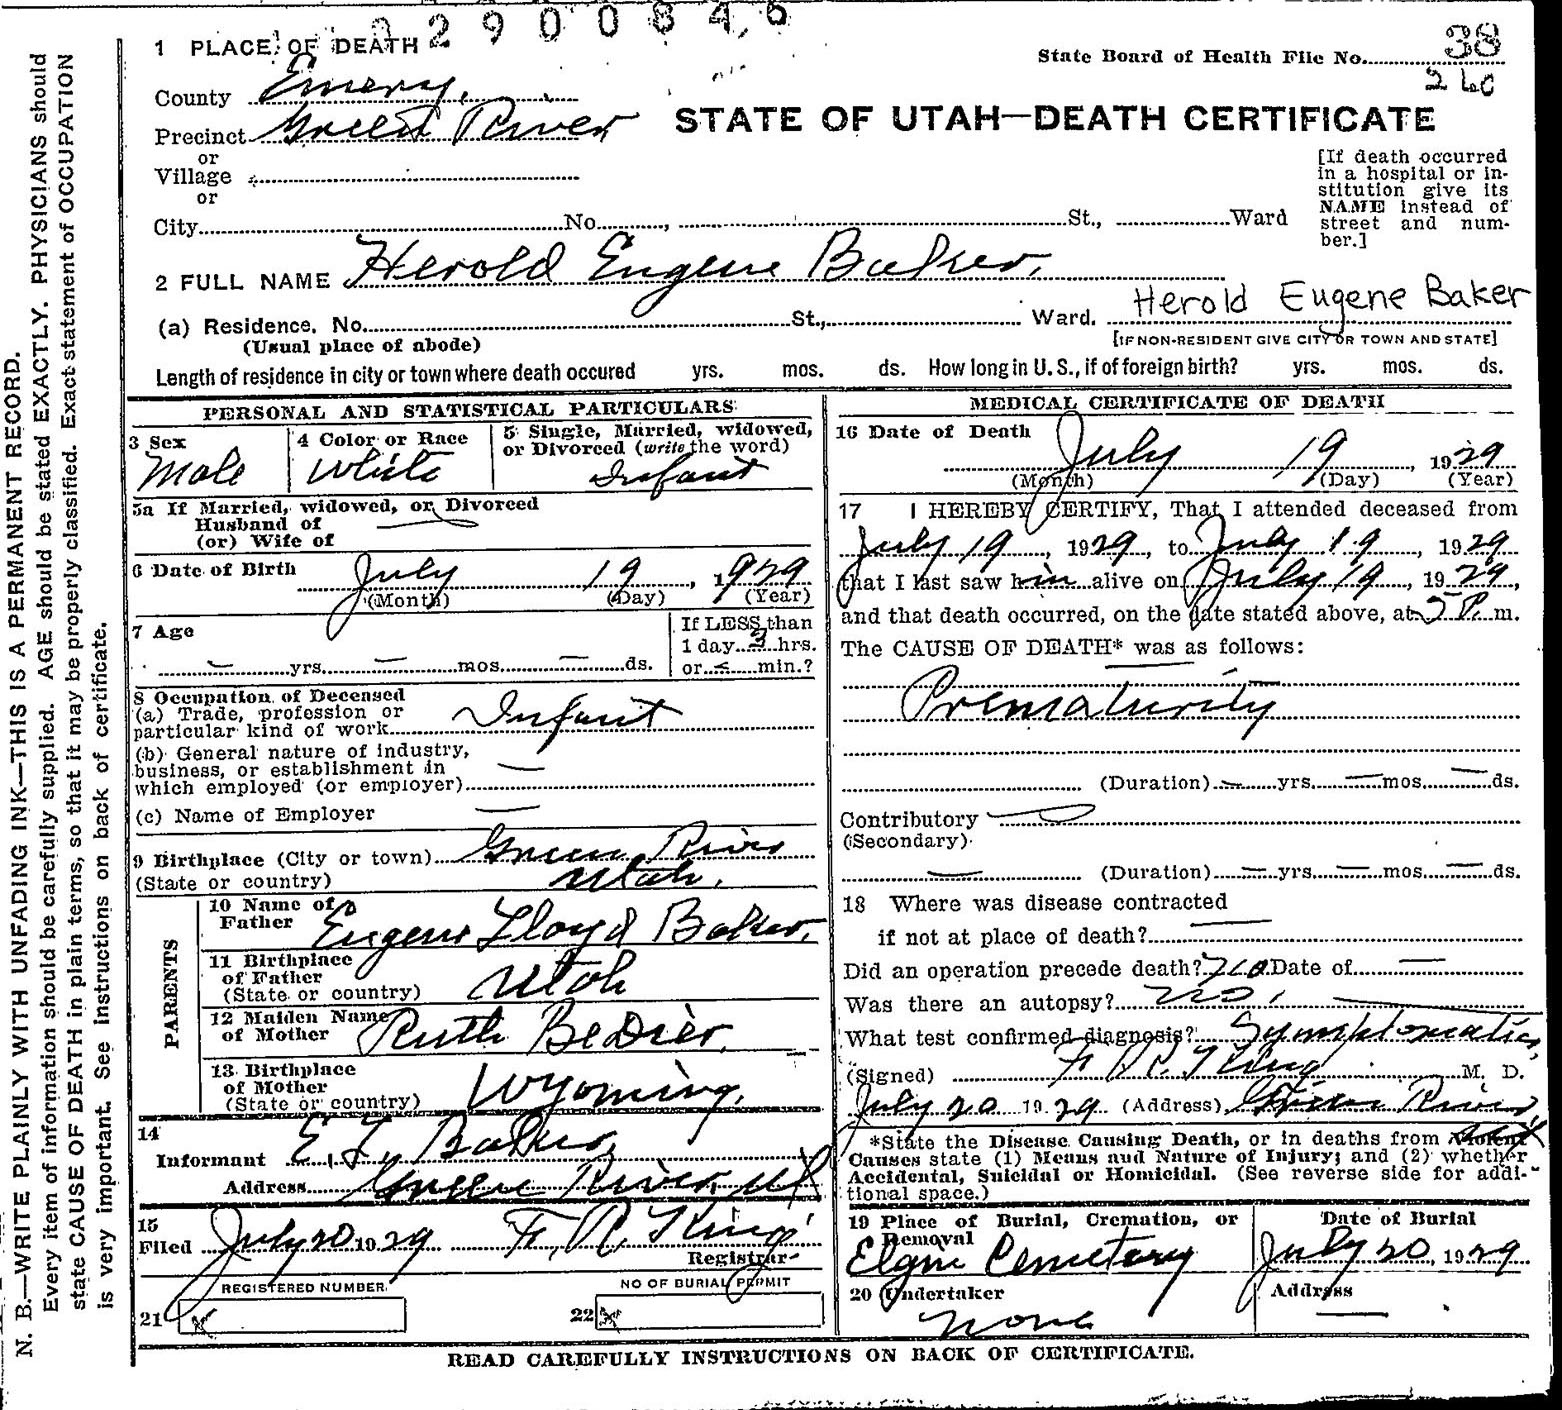 2900846
1 PLACE OF DEATH
State Board of Health File No. 38
260
County Emery.
STATE OF UTAH—DEATH CERTIFICATE
Precinct Green River
or
Village
or
City No. , St., Ward
[If death occurred
in a hospital or in-
stitution give its
NAME instead of
street and num-
ber.]
2 FULL NAME Herold Eugene Baker.
Herold Eugene Baker
(a) Residence. No. St., Ward.
(Usual place of abode)
[IF NON-RESIDENT GIVE CITY OR TOWN AND STATE]
Length of residence in city or town where death occured yrs. mos. ds. How long in U. S., if of foreign birth? yrs. mos. ds.
PERSONAL AND STATISTICAL PARTICULARS
3 Sex
Male
4 Color or Race
White
5 Single, Married, widowed,
or Divorced (write the word)
Infant
5a If Married, widowed, or Divorced
Husband of
(or) Wife of
6 Date of Birth July 19, 1929
(Month) (Day) (Year)
7 Age
— yrs. — mos. — ds.
If LESS than
1 day 3 hrs.
or — min.?
8 Occupation of Deceased
(a) Trade, profession or
particular kind of work Infant
(b) General nature of industry,
business, or establishment in
which employed (or employer) —
(c) Name of Employer —
9 Birthplace (City or town) Green River
(State or country) Utah.
PARENTS
10 Name of
Father Eugene Lloyd Baker.
11 Birthplace
of Father
(State or country) Utah
12 Maiden Name
of Mother Ruth BeDier.
13 Birthplace
of Mother
(State or country) Wyoming.
14
Informant E L. Baker
Address Green River, Ut
15
Filed July 20 1929 F. R. King
Registrar
REGISTERED NUMBER
21 x
NO OF BURIAL PERMIT
22 x
MEDICAL CERTIFICATE OF DEATH
16 Date of Death
July 19, 1929
(Month) (Day) (Year)
17 I HEREBY CERTIFY, That I attended deceased from
July 19, 1929, to July 19, 1929
that I last saw him alive on July 19, 1929,
and that death occurred, on the date stated above, at 5 P. m.
The CAUSE OF DEATH* was as follows:
Prematurity
(Duration) — yrs. — mos. — ds.
Contributory
(Secondary)
— (Duration) — yrs. — mos. — ds.
18 Where was disease contracted
if not at place of death? —
Did an operation precede death? No Date of —
Was there an autopsy? no.
What test confirmed diagnosis? Symptomatic.
(Signed) F. R. King M. D.
July 20 1929 (Address) Green River
*State the Disease Causing Death, or in deaths from Violent
Causes state (1) Means and Nature of Injury; and (2) whether
Accidental, Suicidal or Homicidal. (See reverse side for addi-
tional space.)
19 Place of Burial, Cremation, or
Removal
Elgin Cemetery
Date of Burial
July 20, 1929
20 Undertaker
none
Address
—
READ CAREFULLY INSTRUCTIONS ON BACK OF CERTIFICATE.
N. B.—WRITE PLAINLY WITH UNFADING INK—THIS IS A PERMANENT RECORD.
Every item of information should be carefully supplied. AGE should be stated EXACTLY. PHYSICIANS should
state CAUSE OF DEATH in plain terms, so that it may be properly classified. Exact statement of OCCUPATION
is very important. See instructions on back of certificate.